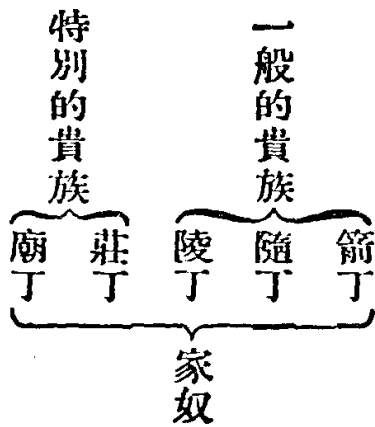 一般的貴族
特別的貴族
箭丁
隨丁
陵丁
莊丁
廟丁
家奴